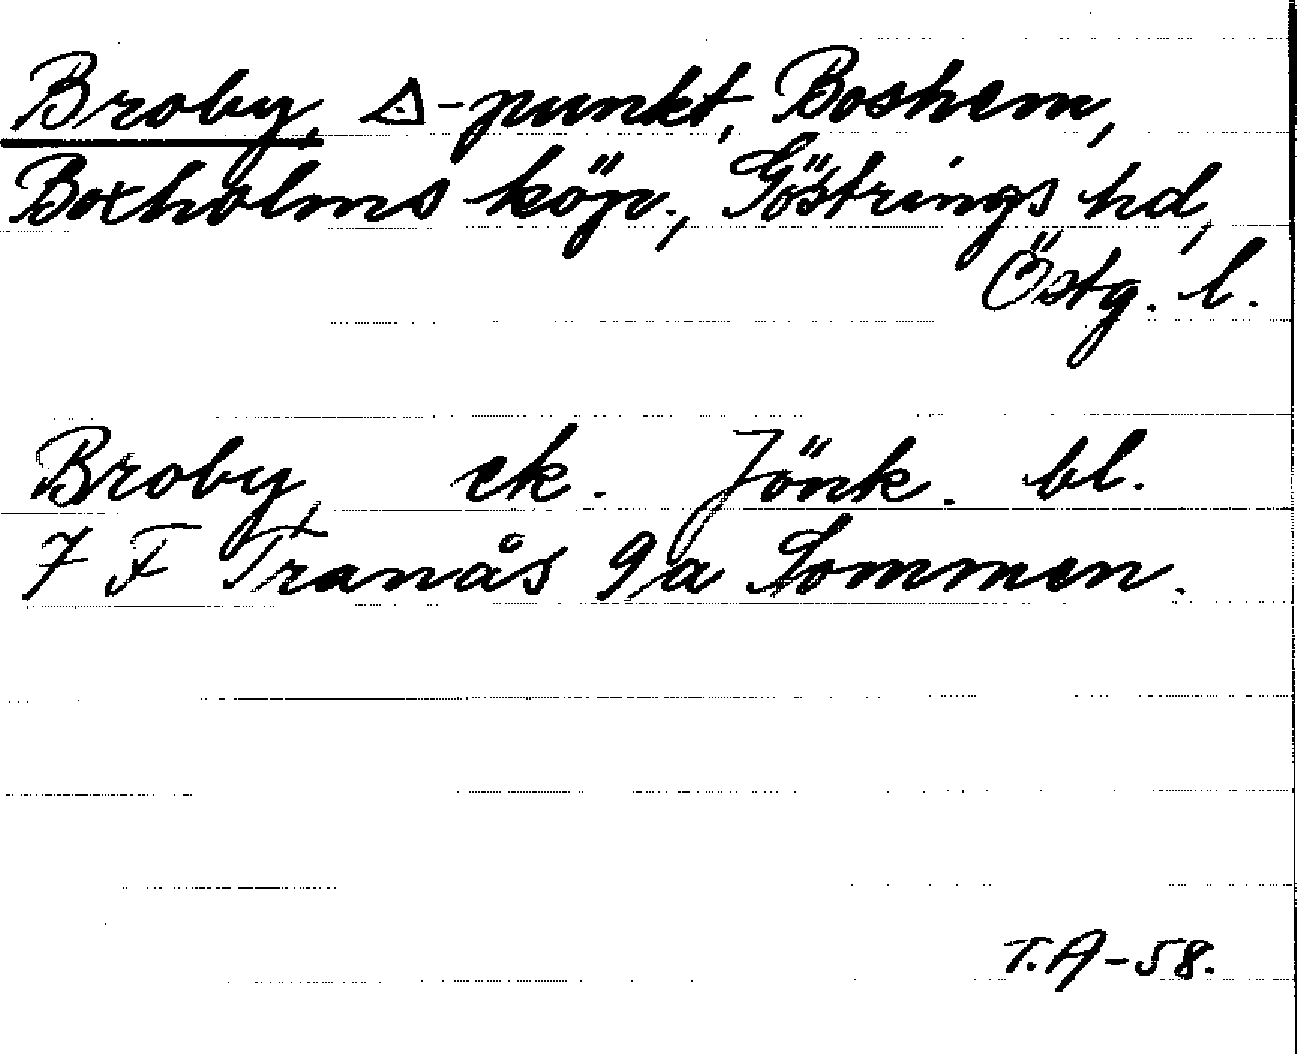 Broby, △-punkt, Boshem,
Boxholms köp., Göstrings hd,
Östg. l.
Broby ek. Jönk. bl.
7 F Tranås 9a Sommen.
T.A-58.